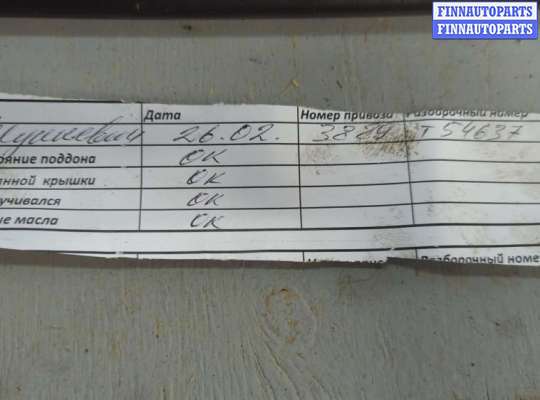 FINNAUTOPARTS
FINNAUTOPARTS
FINNAUTOPARTS
Дата Номер привоза Разборочный номер
26.02. Т 54637
ояние поддона ОК
нной крышки ОК
учивался ОК
ие масла ОК
Разборочный номе